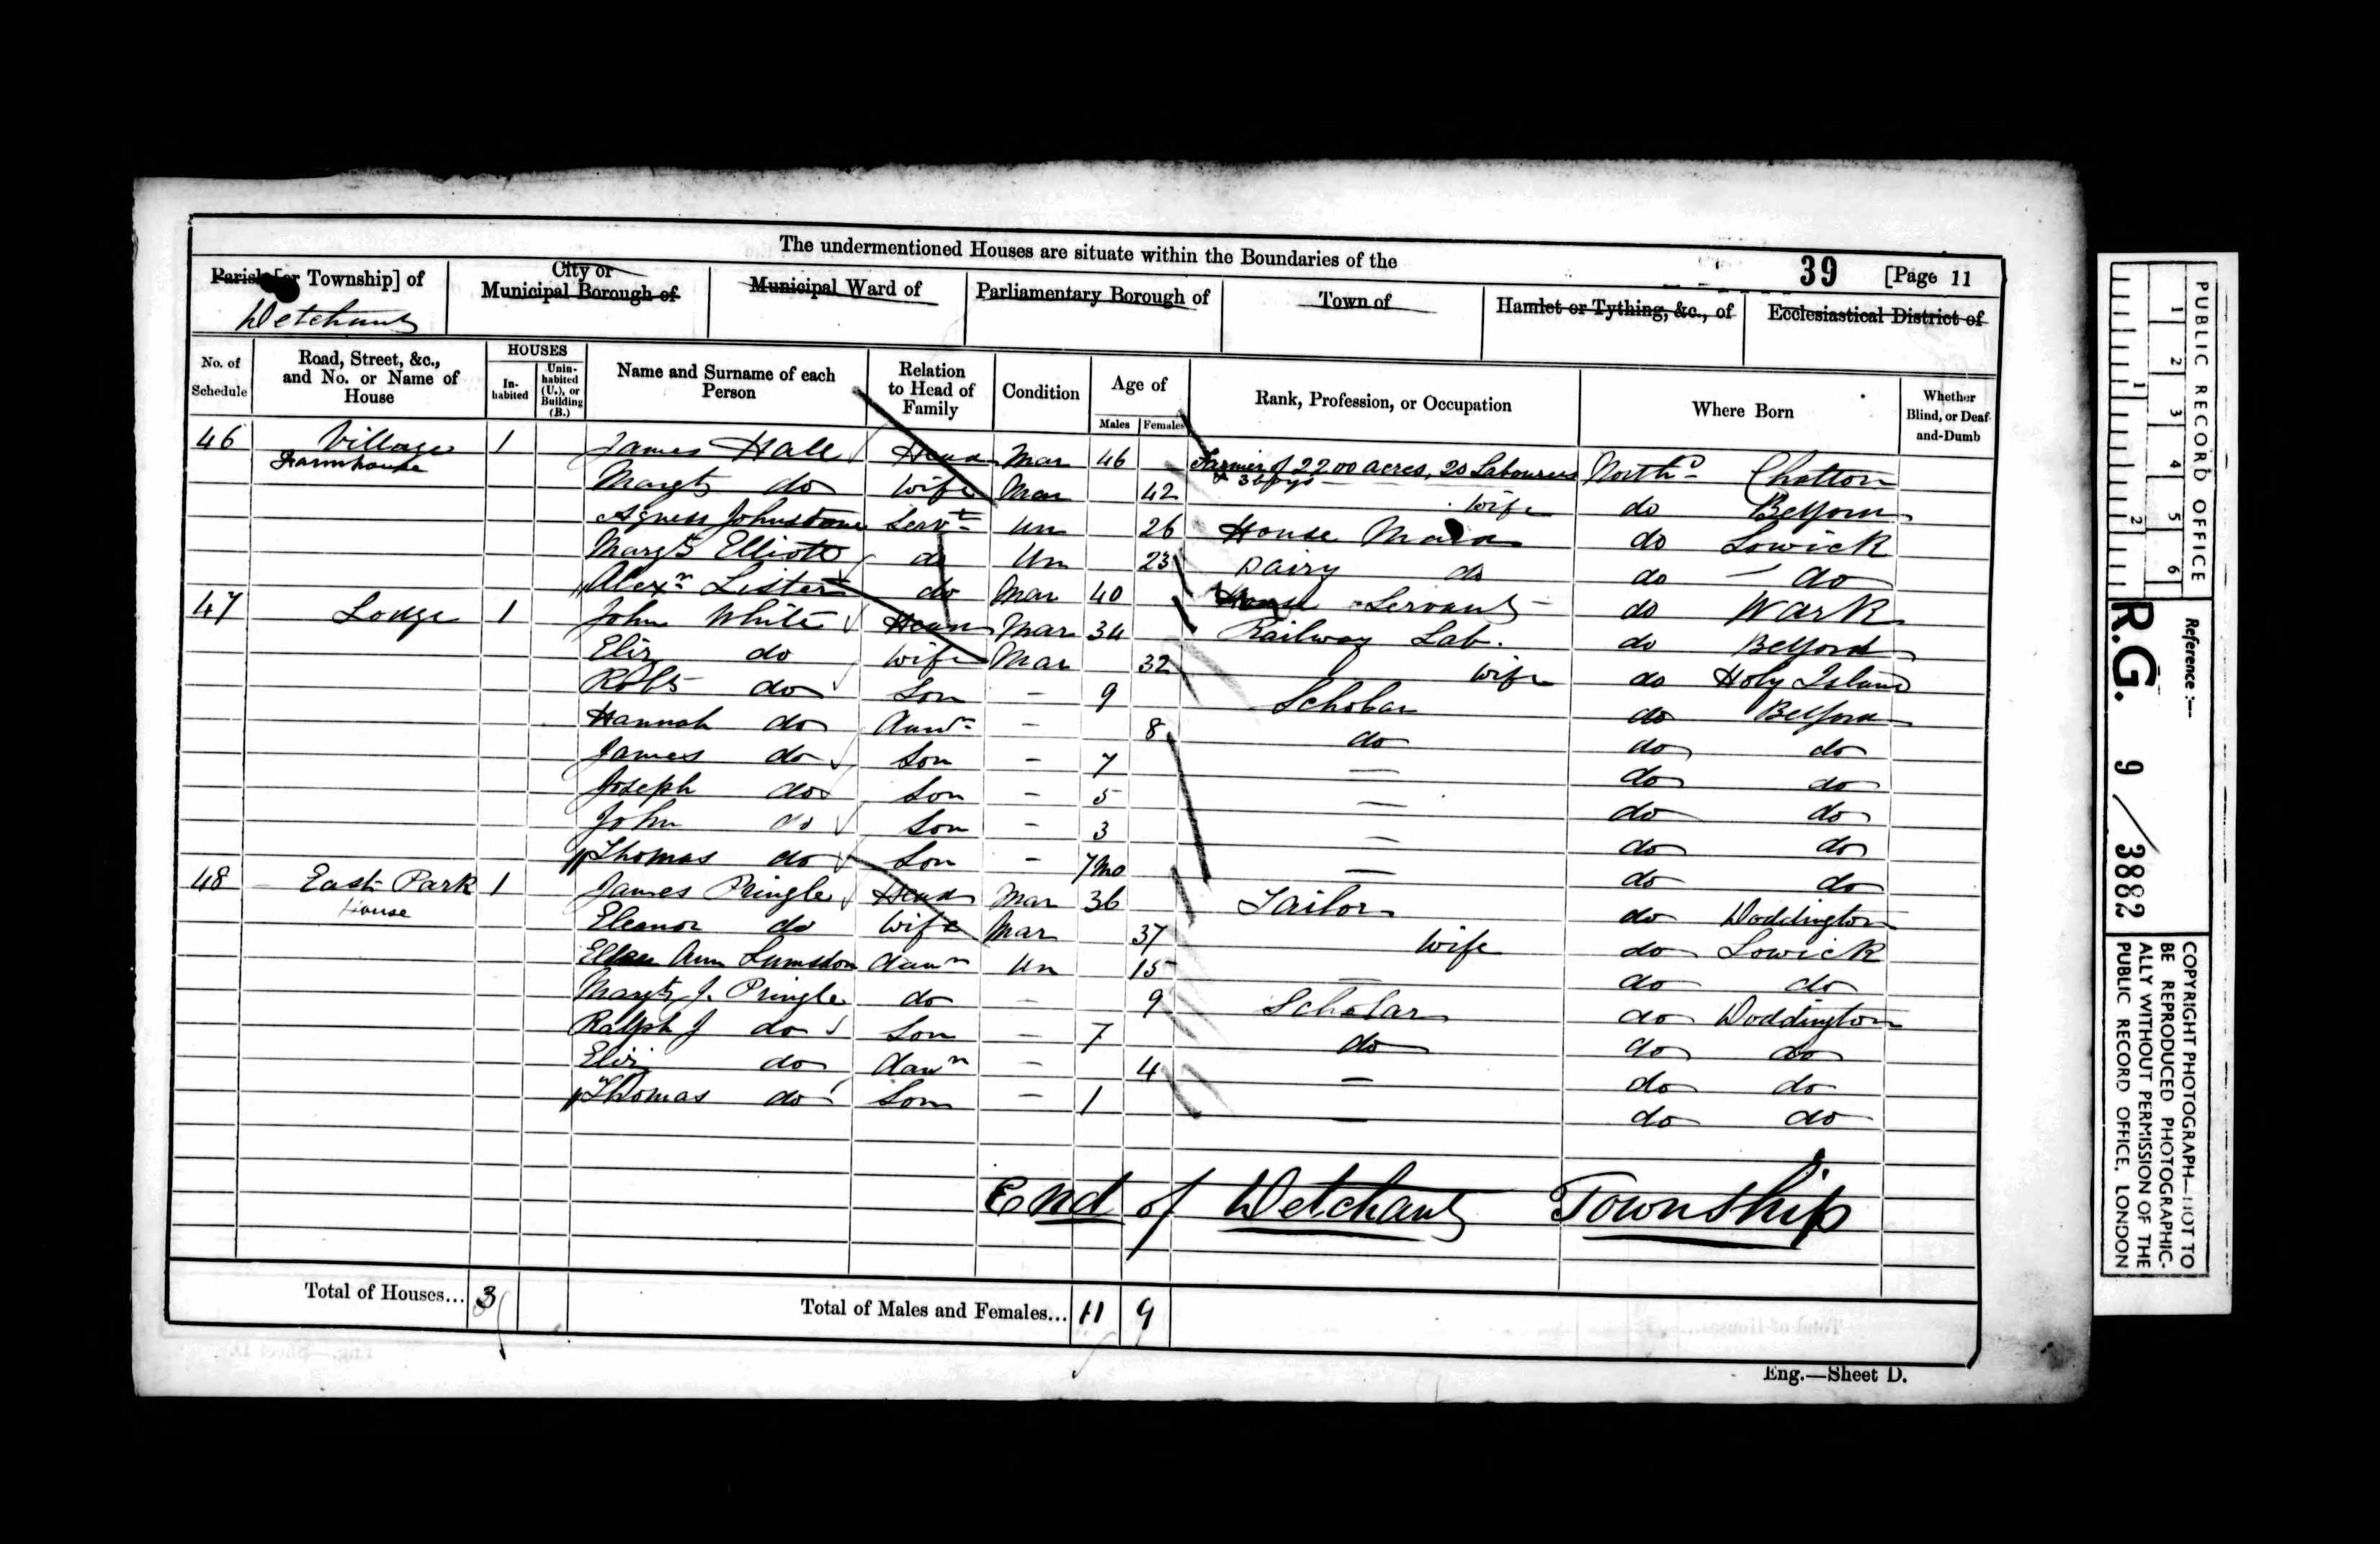 The undermentioned Houses are situate within the Boundaries of the
39 [Page 11
Parish [or Township] of
Detchant
City or Municipal Borough of
Municipal Ward of
Parliamentary Borough of
Town of
Hamlet or Tything, &c., of
Ecclesiastical District of
No. of Schedule
Road, Street, &c., and No. or Name of House
HOUSES
In-habited
Unin-habited (U.), or Building (B.)
Name and Surname of each Person
Relation to Head of Family
Condition
Age of
Males Females
Rank, Profession, or Occupation
Where Born
Whether Blind, or Deaf-and-Dumb
46 Village Farmhouse 1 James Hall Head Mar 46 Farmer of 2200 acres, 20 Labourers & 3 boys Northd Chatton
Margt do Wife Mar 42 Wife do Belford
Agness Johnstone Servt Un 26 House Maid do Lowick
Margt Elliott do Un 23 Dairy do do do
Alexr Lister do Mar 40 Servant do Wark
47 Lodge 1 John White Head Mar 34 Railway Lab. do Belford
Eliz do Wife Mar 32 Wife do Holy Island
Robt do Son - 9 Scholar do Belford
Hannah do Daur - 8 do do do
James do Son - 7 - do do
Joseph do Son - 5 - do do
John do Son - 3 - do do
Thomas do Son - 7 Mo - do do
48 East Park House 1 James Pringle Head Mar 36 Tailor do Doddington
Eleanor do Wife Mar 37 Wife do Lowick
Ann Lumsdon daur Un 15 - do do
Margt J. Pringle do - 9 Scholar do Doddington
Ralph J do Son - 7 do do do
Eliz do daur - 4 - do do
Thomas do Son - 1 - do do
End of Detchant Township
Total of Houses... 3
Total of Males and Females... 11 9
Eng.—Sheet D.
PUBLIC RECORD OFFICE
1 2 3 4 5 6
1 2
Reference :—
R.G. 9 / 3882
COPYRIGHT PHOTOGRAPH—NOT TO
BE REPRODUCED PHOTOGRAPHIC-
ALLY WITHOUT PERMISSION OF THE
PUBLIC RECORD OFFICE, LONDON